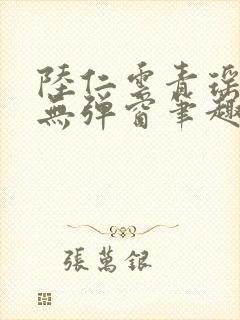 陸仁雲青瑤
無彈窗筆趣
張萬銀